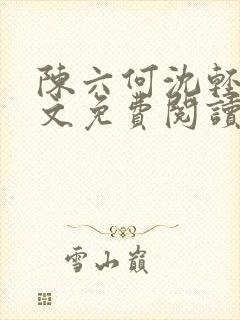 陳六何沈輕
文免費閱讀
雪山巔